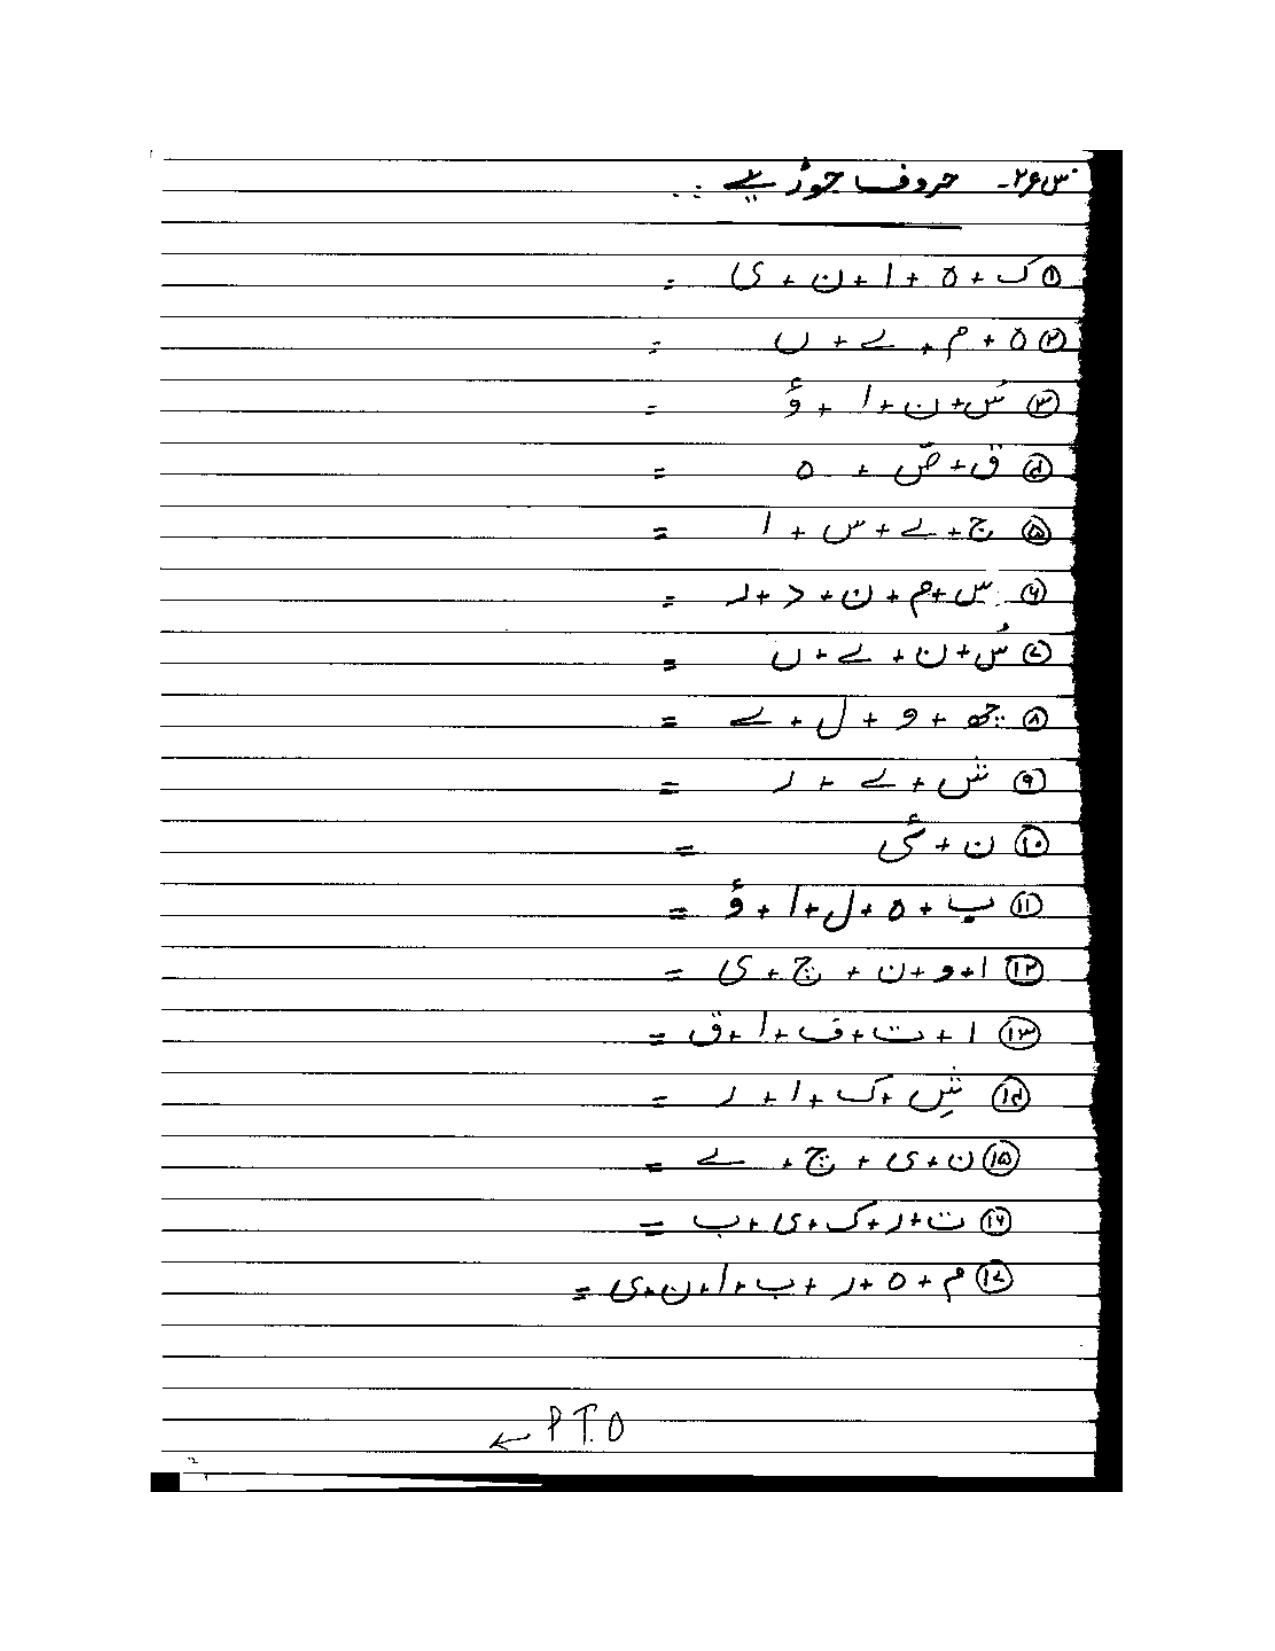 س۲۶- حروف جوڑیے :.
① ک + ہ + ا + ن + ی =
② ہ + م + ے + ں =
③ سُ + ن + ا + ؤ =
④ ق + صّ + ہ =
⑤ ج + ے + س + ا =
⑥ س + م + ن + د + ر =
⑦ سُ + ن + ے + ں =
⑧ چھ + و + ل + ے =
⑨ ش + ے + ر =
⑩ ن + ئ =
⑪ پ + ہ + ل + ا + ؤ =
⑫ ا + و + ن + چ + ی =
⑬ ا + ت + ف + ا + ق =
⑭ شِ + ک + ا + ر =
⑮ ن + ی + چ + ے =
⑯ ت + ر + ک + ی + ب =
⑰ م + ہ + ر + ب + ا + ن + ی =
P.T.O ←